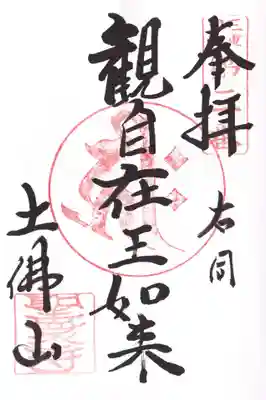 奉拝
右同
観自在王如来
土佛山